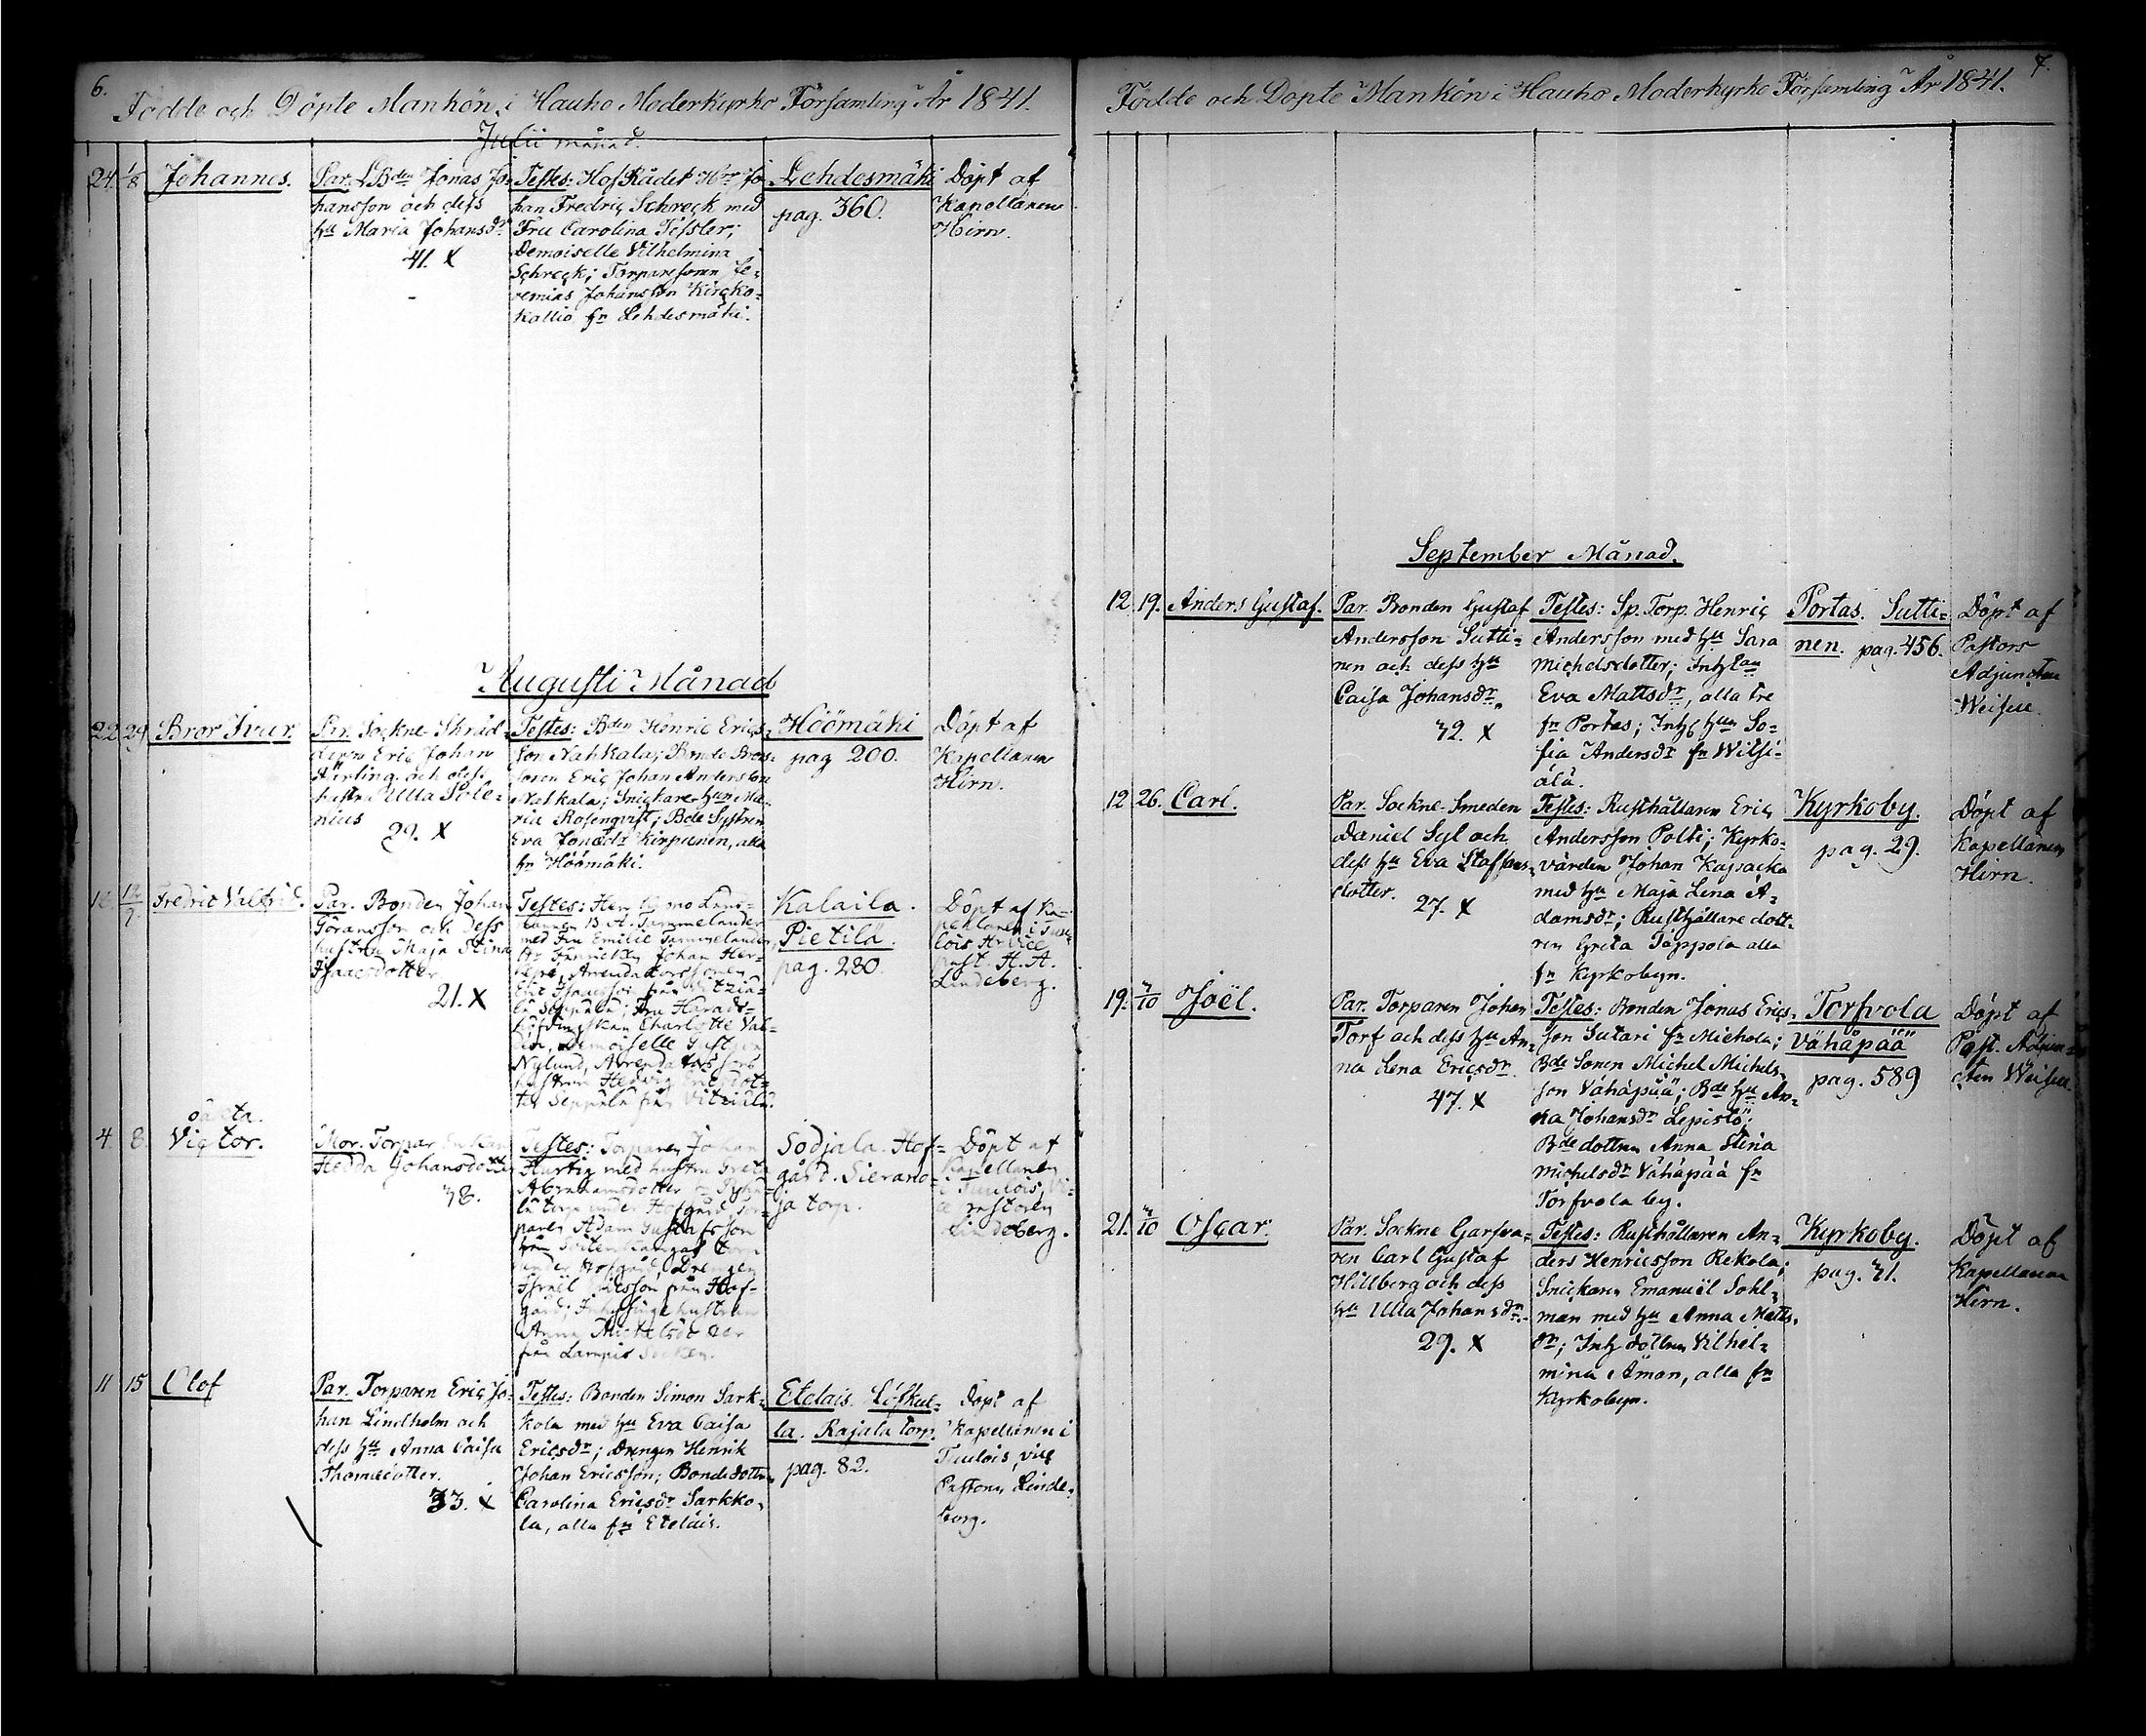 6.
Födde och Döpte Mankön i Hauho Moderkyrko Församling År 1841.
Julii månad.
24. 1/8 Johannes.
Par. LBden Jonas Jo-
hansson och dess
hu Maria Johansdr
41. X
Testes: HofRådet Hrr Jo-
han Fredric Schreck med
Fru Carolina Tessler;
Demoiselle Vilhelmina
Schreck; Torparesonen Je-
remias Johansson Kircko-
kallio fn Lehdesmäki.
Lehdesmäki
pag. 360.
Döpt af
Kapellanen
Hirn.
Augusti Månad
22 29 Bror Ivar
Par. Sockne Skräd-
deren Eric Johan
och dess
hustru Ulla Sole-
nius
29. X
Testes: Bden Henric Erics-
son Nahkala; Bonde
sonen Eric Johan Andersson
Nahkala; Snickare hun Ma-
ria Rosenqvist; Bde
Eva Jonaedr Kirpunen, alla
fn Höömäki.
Höömäki
pag 200.
Döpt af
Kapellanen
Hirn.
Fredric Valfrid.
Par. Bonden Johan
Göransson och Dess
hustru Maja Stina
Isaacsdotter
21. X
Testes: Herr
B. A. Tammelander
med Fru Emilie Tammelander
Johan Her-
Arrendatorssonen
Eric Isaacsson från Vitziä-
lä Seppälä; Fru Härads-
höfdingskan Charlotte Val-
Demoiselle
Nylund, Arrendators
hustrun Hedvig
ter Seppälä från Vitziälä.
Kalaila.
Pietilä.
pag. 280.
Döpt af Ka-
pellanen i Tuu-
lois Hr Vice
past. H. A.
Lindeberg.
oäkta.
4. 8. Victor.
Mor. Torpar Enkan
Hedda Johansdotter
38.
Testes: Torparen Johan
Hurtig med hustru Greta
Abrahamsdotter
lä torp under Hofgård, Tor-
paren Adam Gustafsson
från torp
under Hofgård, Drengen
Israël från Hof-
gård; Inhysinge hustrun
Anna Michelsdotter
från Lampis Socken.
Sodjala Hof-
gård. Sierano-
ja torp.
Döpt af
Kapellanen
i Tuulois, Vi-
ce Pastoren
Lindeberg.
11 15 Olof
Par. Torparen Eric Jo-
han Lindholm och
dess hu Anna Caisa
Thomædotter.
33. X
Testes: Bonden Simon Sark-
kola med hu Eva Caisa
Ericsdr; Drengen Henrik
Johan Ericsson; Bondedottren
Carolina Ericsdr Sarkko-
la, alla fn Eteläis.
Eteläis. Löfkul-
la. Rajala torp.
pag. 82.
Döpt af
Kapellanen i
Tuulois, vice
Pastorn Linde-
berg.
7.
Födde och Döpte Mankön i Hauho Moderkyrko Församling År 1841.
September Månad.
12. 19. Anders Gustaf.
Par. Bonden Gustaf
Andersson Sutti-
nen och dess hu
Caisa Johansdr.
42. X
Testes: Sp. Torp. Henric
Andersson med hu Sara
Michelsdotter;
Eva Mattsdr, alla tre
fn Portas; Inh hun So-
fia Andersdr fn Witsi-
älä.
Portas. Sutti-
nen. pag. 456.
Döpt af
Pastors
Adjuncten
12 26. Carl.
Par. Sockne-Smeden
Daniel Syl och
dess hu Eva Staffans-
dotter.
27. X
Testes: Rusthållaren Eric
Andersson Polti; Kyrko-
värden Johan Kapacka
med hu Maja Lena A-
damsdr; Rusthållare dott-
ren Greta Täppola alla
fn Kyrkobyn.
Kyrkoby.
pag. 29.
Döpt af
Kapellanen
Hirn.
19. 3/10 Joël.
Par. Torparen Johan
Torf och dess hu An-
na Lena Ericsdr.
47. X
Testes: Bonden Jonas Erics-
son Sutari fn Miehola;
Bde Sonen Michel Michels-
son Vähäpää; Bde hu An-
na Johansdr Lepistö;
Bde dottren Anna Stina
Michelsdr Vähäpää fn
Torfvola by.
Torfvola
Vähäpää
pag. 589
Döpt af
Past. Adjun-
cten
21. 3/10 Oscar.
Par. Sockne Garfva-
ren Carl Gustaf
Hillberg och dess
hu Ulla Johansdr.
29. X
Testes: Rusthållaren An-
ders Henricsson Rekola;
Snickaren Emanuël Sohl-
man med hu Anna Matts-
dr; Inh dottren Vilhel-
mina Åman, alla fn
Kyrkobyn.
Kyrkoby.
pag. 41.
Döpt af
Kapellanen
Hirn.